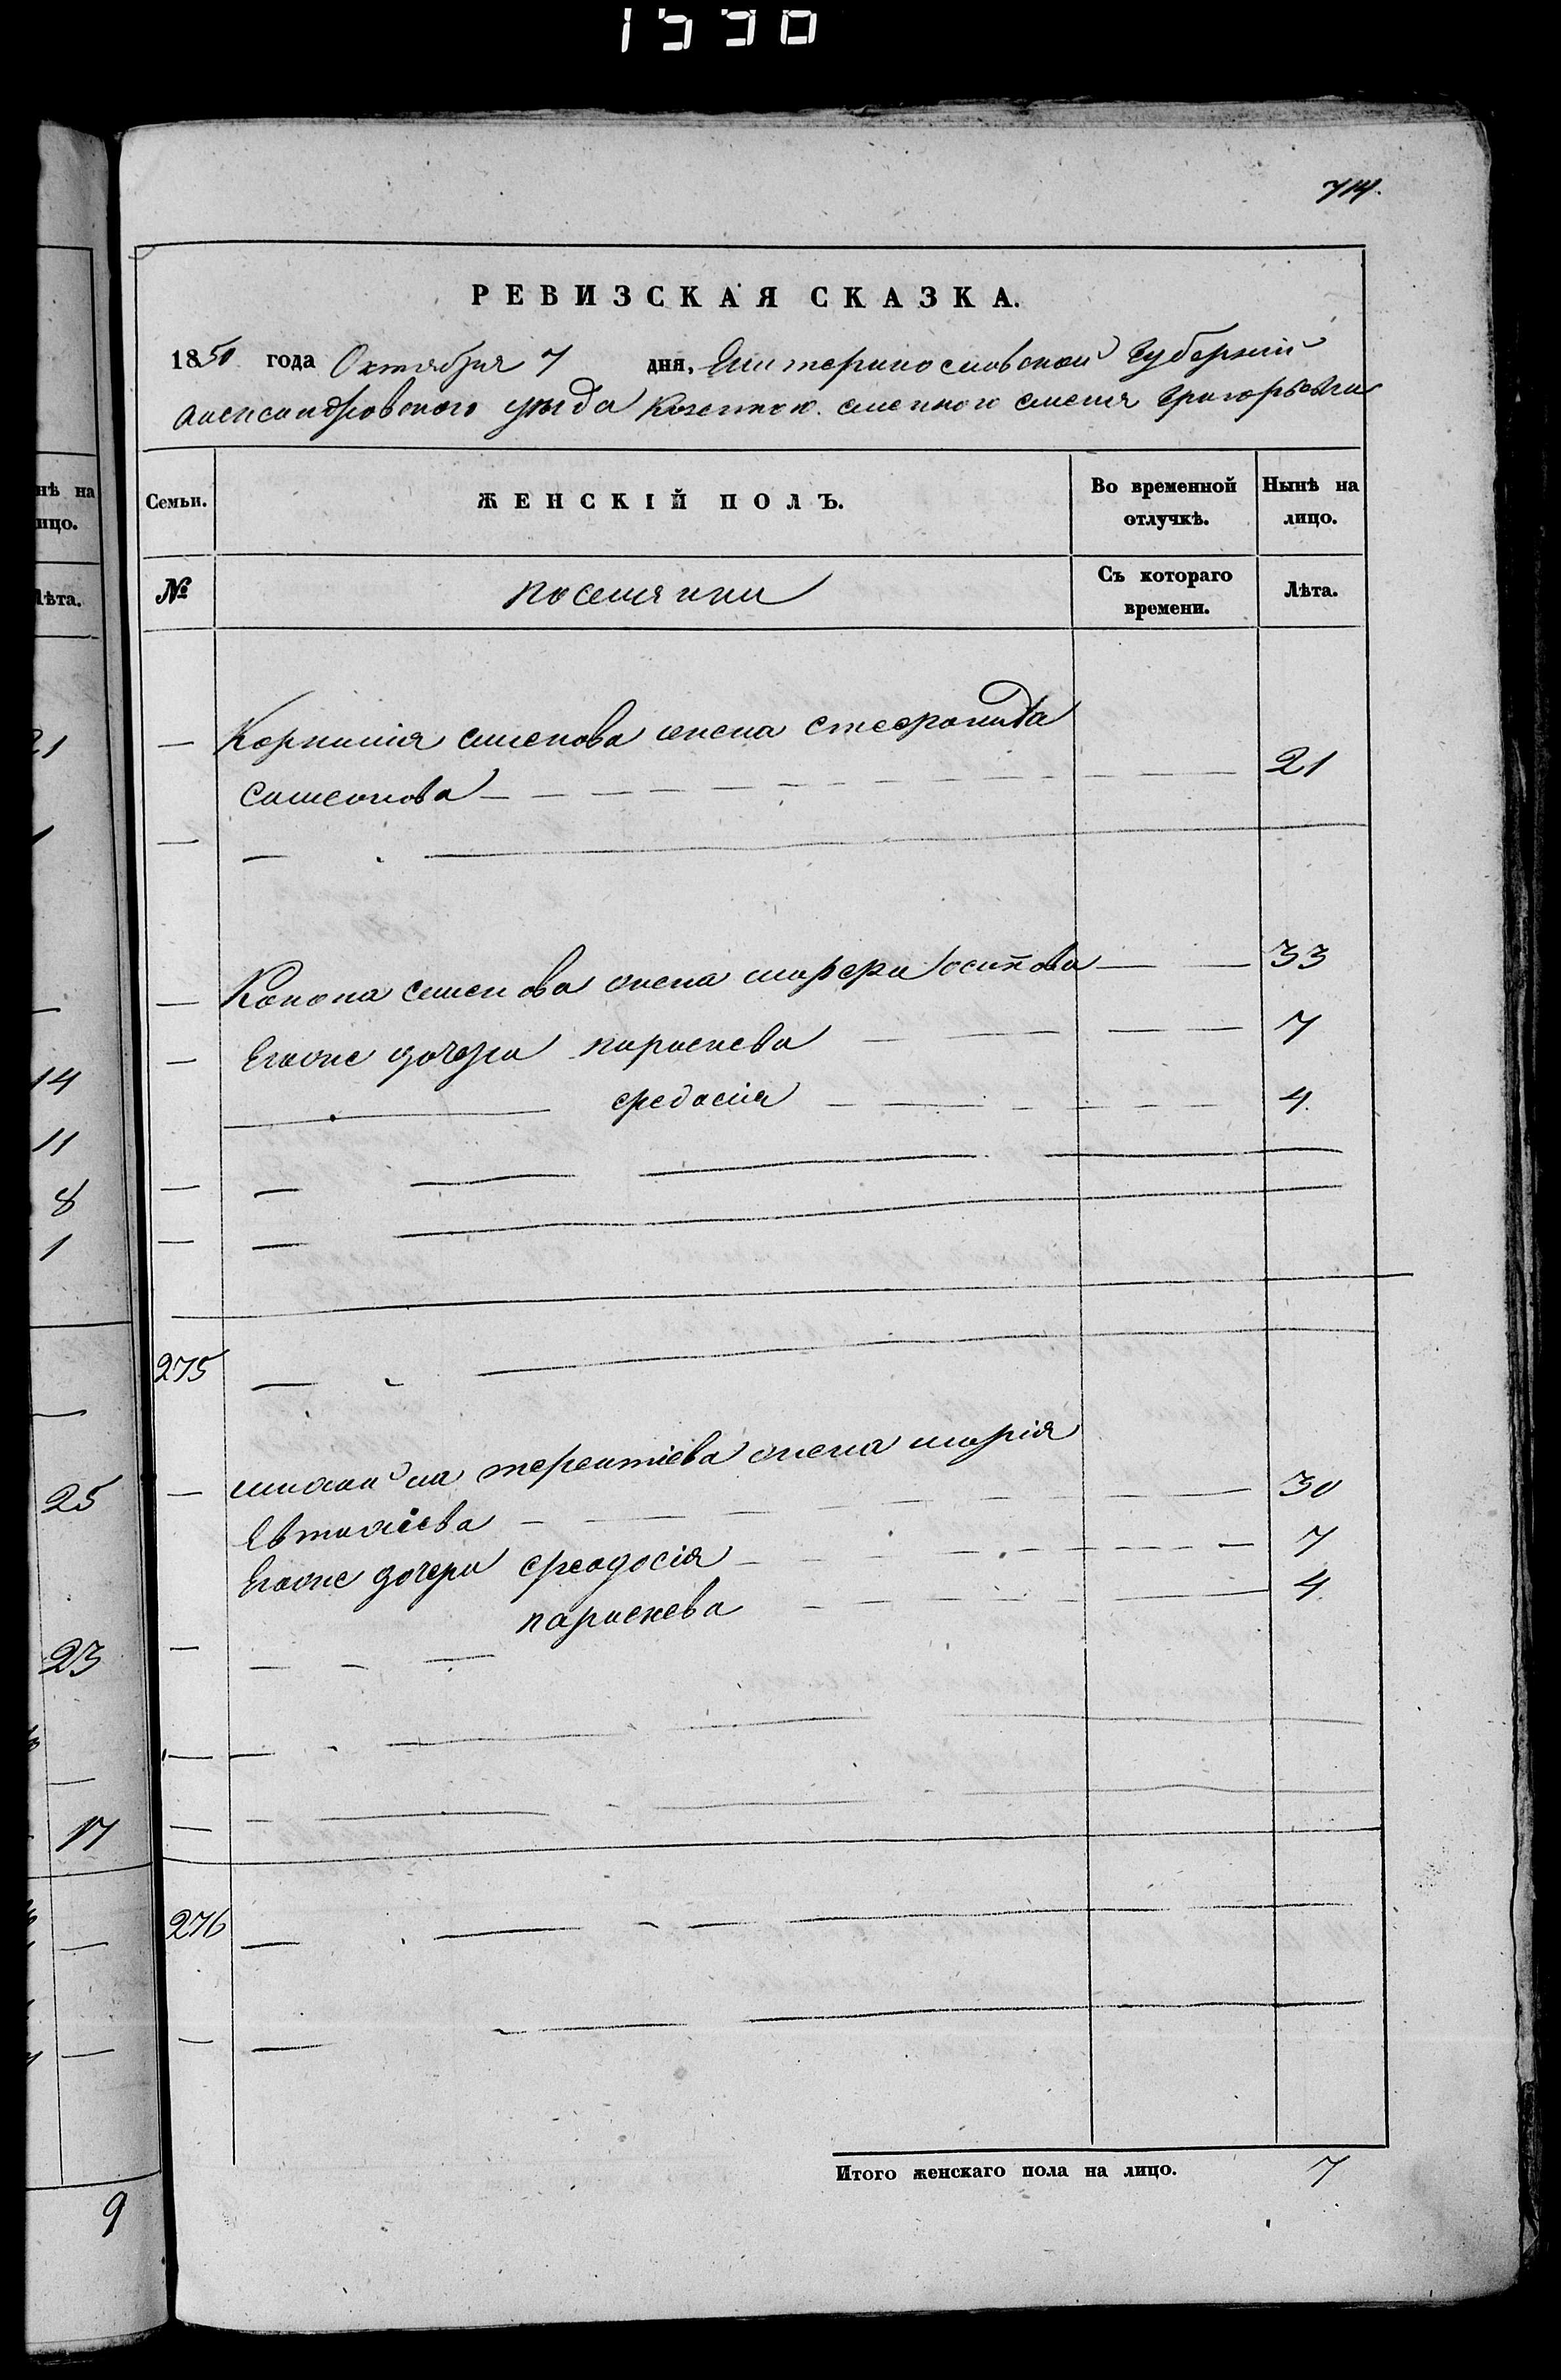 1550
714.
РЕВИЗСКАЯ СКАЗКА.
1850 года Октября 7 дня, Екатеринославской Губерніи
Александровского уезда Казенного селенного Григорьевки
Семьи.
ЖЕНСКІЙ ПОЛЪ.
Во временной отлучкѣ.
Нынѣ на лицо.
№
поселянки
Съ котораго времени.
Лѣта.
— Корнилія семенова жена стефанида
семенова — 21
—
— Конона семенова жена марфа Іосипова — 33
— Егоже дочери параскева — 7
федосія — 4.
—
—
275 —
— михаила терентіева жена марія
Евтихіева — 30
Егоже дочери феодосія — 7
параскева — 4.
—
—
—
276 —
—
Итого женскаго пола на лицо. 7
нѣ на
ицо.
лѣта.
21
14
11
8
1
25
23
17
9